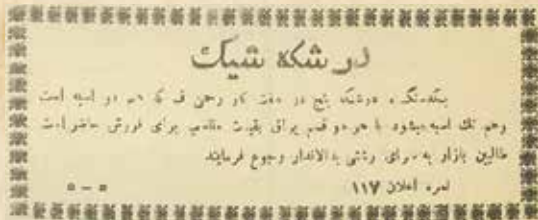 درشکه شیک
یکدستگاه درشکه پنج در هفت کار رحمن ف که هم دو اسبه است
وهم تک اسبه میشود با هر دو قسم یراق بقیمت مناسب برای فروش حاضر است
طالبین بازار به سرای رشتی بدالاندار رجوع فرمایند
نمره اعلان ۱۱۷ ۵ — ۵